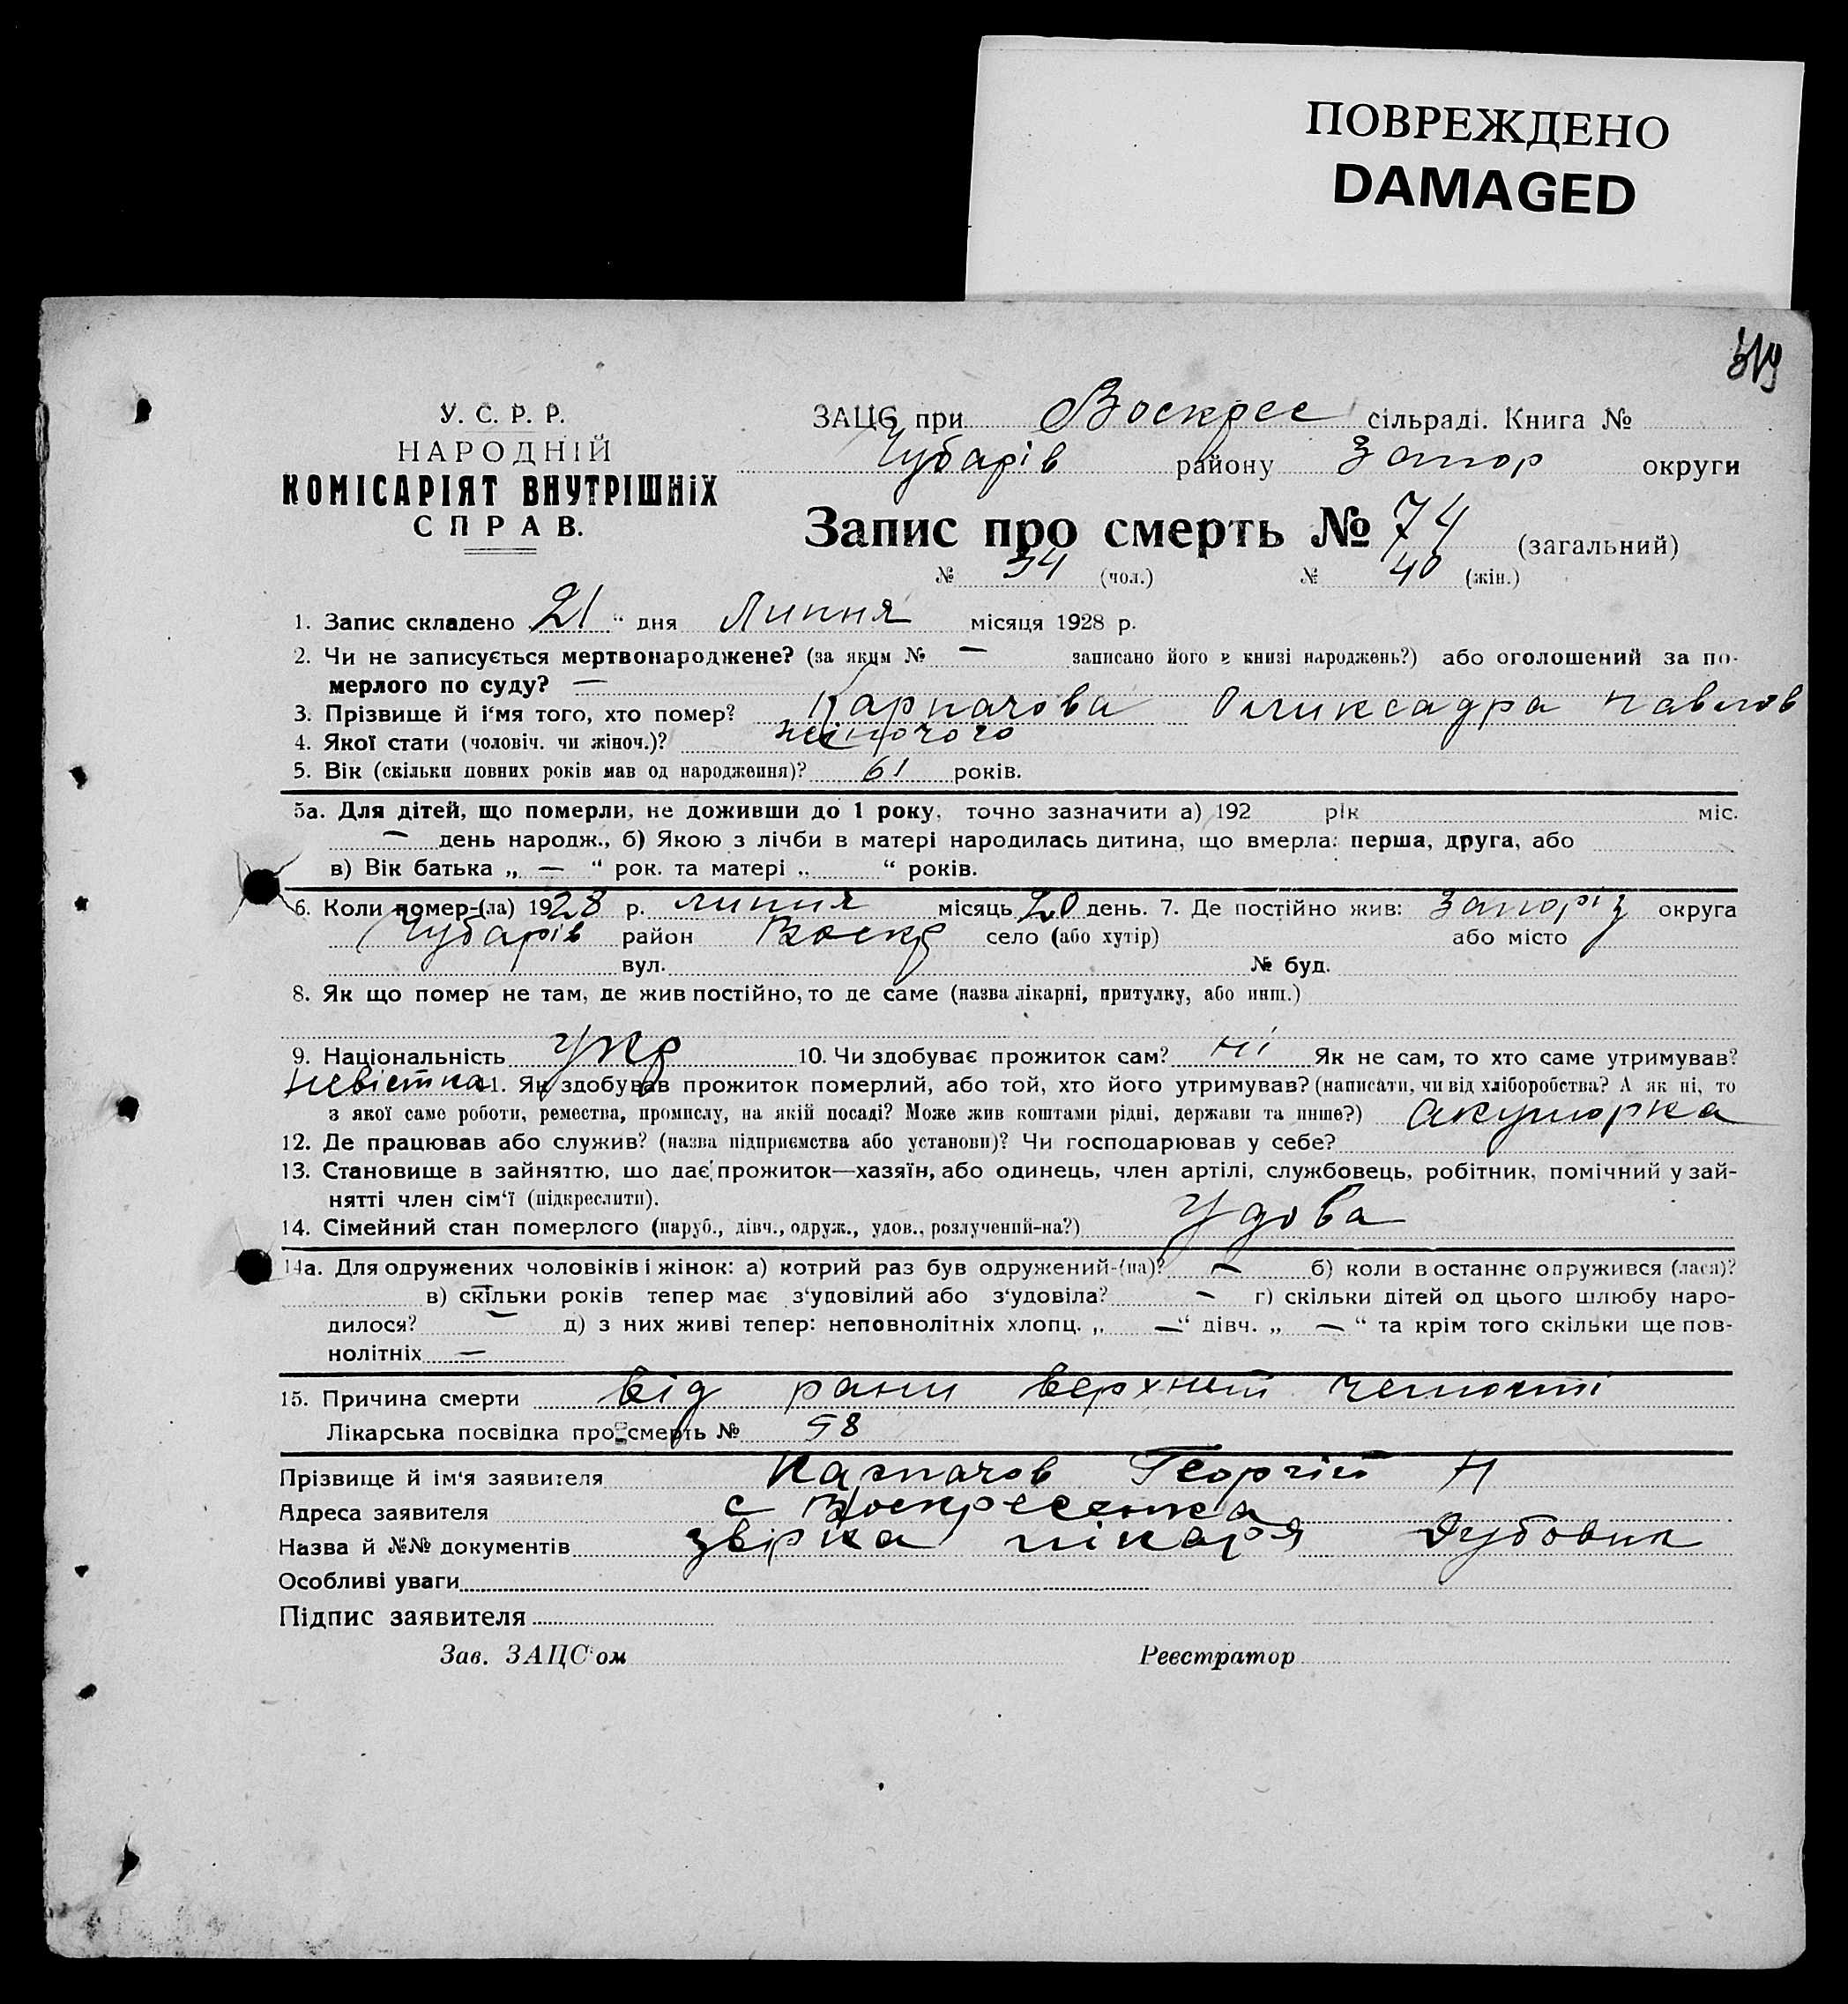 ПОВРЕЖДЕНО
DAMAGED
У. С. Р. Р.
НАРОДНІЙ
КОМІСАРІЯТ ВНУТРІШНІХ
СПРАВ.
ЗАЦС при Воскрес сільраді. Книга №
Чубарів району Запор округи
Запис про смерть № 74 (загальний)
№ 34 (чол.) № 40 (жін.)
1. Запис складено 21 “ дня Липня місяця 1928 р.
2. Чи не записується мертвонароджене? (за яким № — записано його в книзі народжень?) або оголошений за по-
мерлого по суду? —
3. Прізвище й і‘мя того, хто помер? Карпачова Оликсадра Павлов
4. Якої стати (чоловіч. чи жіноч.)? жіночого
5. Вік (скільки повних років мав од народження)? 61 років.
5а. Для дітей, що померли, не доживши до 1 року, точно зазначити а) 192 рік міс.
— день народж., б) Якою з лічби в матері народилась дитина, що вмерла: перша, друга, або
в) Вік батька „ — “ рок. та матері „ “ років.
6. Коли помер-(ла) 1928 р. липня місяць 20 день. 7. Де постійно жив: Запоріз округа
Чубарів район Воскр село (або хутір) або місто
вул. № буд.
8. Як що помер не там, де жив постійно, то де саме (назва лікарні, притулку, або инш.)
9. Національність Укр 10. Чи здобуває прожиток сам? Ні Як не сам, то хто саме утримував?
Невістка 11. Як здобував прожиток померлий, або той, хто його утримував? (написати, чи від хліборобства? А як ні, то
з якої саме роботи, ремества, промислу, на якій посаді? Може жив коштами рідні, держави та инше?) Акушорка
12. Де працював або служив? (назва підприємства або установи)? Чи господарював у себе?
13. Становище в зайняттю, що дає прожиток—хазяїн, або одинець, член артілі, службовець, робітник, помічний у зай-
нятті член сім‘ї (підкреслити).
14. Сімейний стан померлого (паруб., дівч., одруж., удов., розлучений-на?) Удова
14а. Для одружених чоловіків і жінок: а) котрий раз був одружений-(на)? — б) коли востаннє одружився (лася)?
— в) скільки років тепер має з‘удовілий або з‘удовіла? — г) скільки дітей од цього шлюбу наро-
дилося? — д) з них живі тепер: неповнолітніх хлопц. „ — “ дівч. „ — “ та крім того скільки ще пов-
нолітніх —
15. Причина смерти від рани верхнеті челюсті
Лікарська посвідка про смерть № 58
Прізвище й ім‘я заявителя Карпачов Георгій Н
Адреса заявителя с Воскресенка
Назва й №№ документів звірка лікаря Дубовик
Особливі уваги
Підпис заявителя
Зав. ЗАЦС‘ом Реєстратор